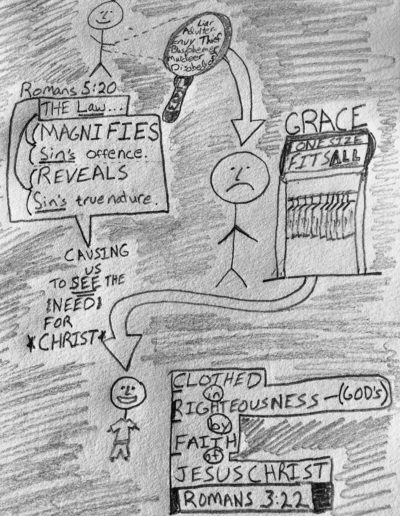 Liar
Adulter
Envy Thief
Blasphemer
Murderer
Disobedient
Romans 5:20
THE Law...
MAGNIFIES
Sin's offence.
REVEALS
Sin's true nature.
CAUSING
US
TO SEE THE
NEED
FOR
*CHRIST*
GRACE
ONE SIZE
FITS ALL
CLOTHED
in
RIGHTEOUSNESS-(GOD'S)
by
FAITH
of
JESUS CHRIST
ROMANS 3:22